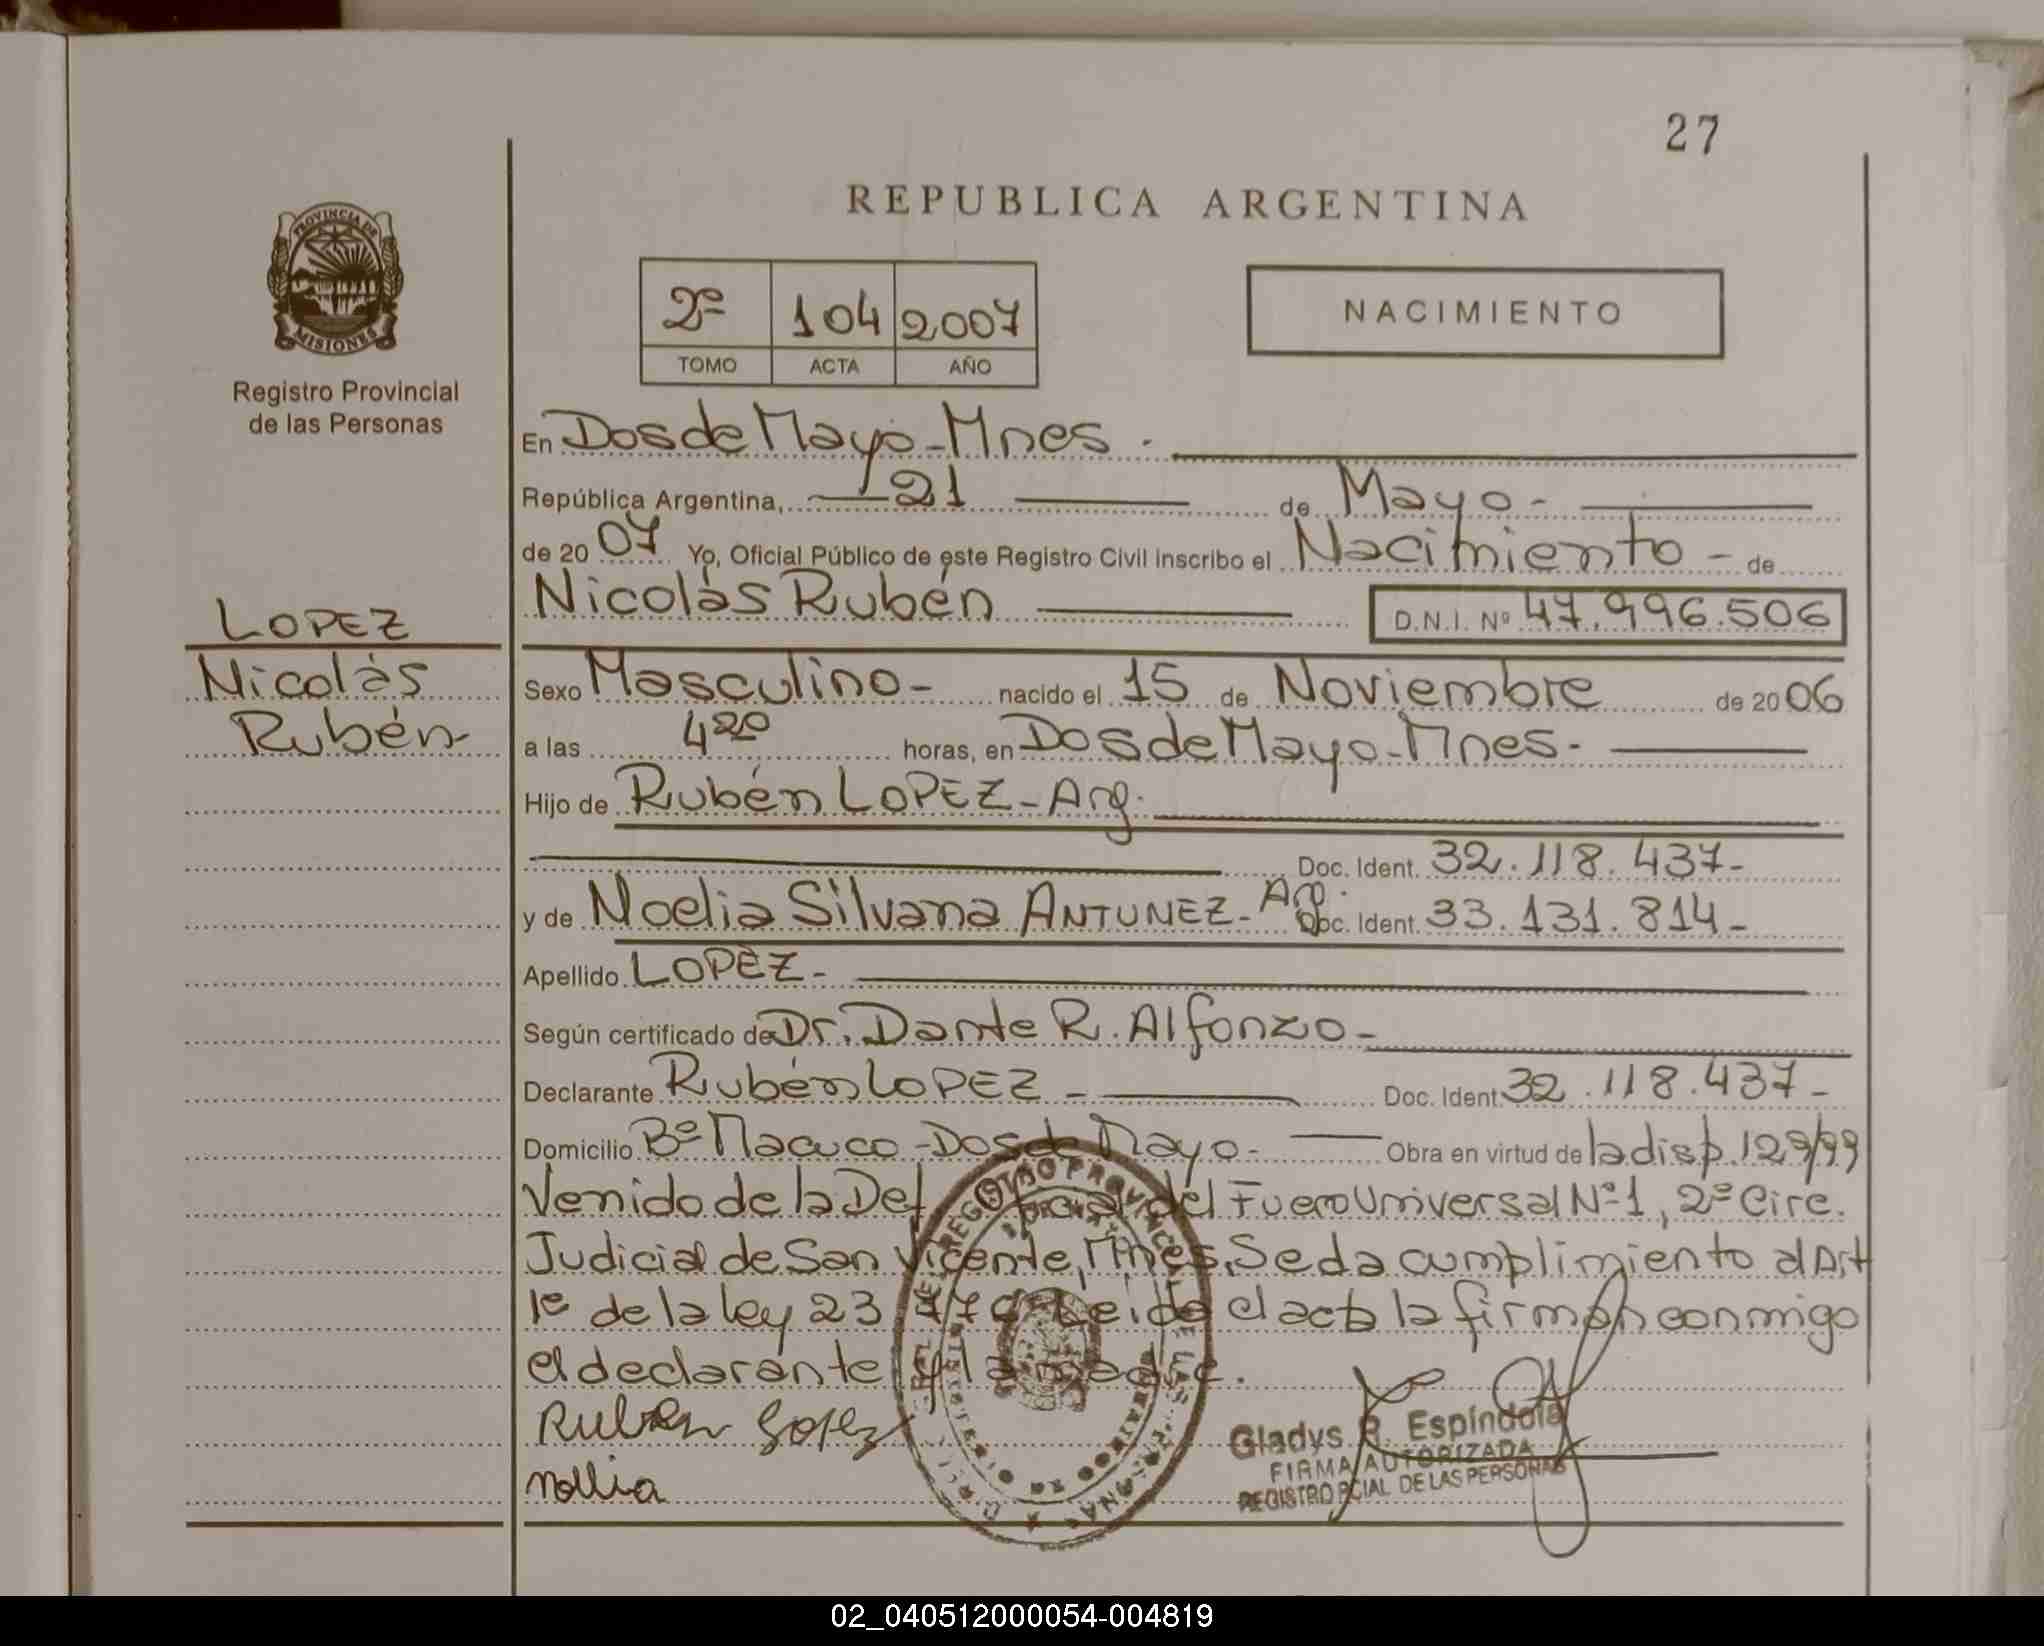 27
REPUBLICA ARGENTINA
PROVINCIA DE
MISIONES
Registro Provincial
de las Personas
2º 104 2007
TOMO ACTA AÑO
NACIMIENTO
En Dos de Mayo - Mnes.
República Argentina, 21 de Mayo -
de 2007 Yo, Oficial Público de este Registro Civil inscribo el Nacimiento - de
Nicolás Rubén D.N.I. Nº 47.996.506
LOPEZ
Nicolás
Rubén-
Sexo Masculino - nacido el 15 de Noviembre de 2006
a las 4 20 horas, en Dos de Mayo - Mnes. -
Hijo de Rubén LOPEZ - Arg.
Doc. Ident. 32.118.437-
y de Noelia Silvana ANTUNEZ - Arg. Doc. Ident. 33.131.814-
Apellido LOPEZ -
Según certificado de Dr. Dante R. Alfonzo -
Declarante Rubén LOPEZ - Doc. Ident. 32.118.437-
Domicilio Bº Macuco - Dos de Mayo - Obra en virtud de la disp. 129/99
Venido de la Def. Oficial del Fuero Universal Nº 1, 2º Circ.
Judicial de San Vicente, Mnes. Se da cumplimiento al Art
1º de la ley 23 Leida el acta la firman conmigo
el declarante y la madre.
Ruben Lopez
noelia
REGISTRO PROVINCIAL DE LAS PERSONAS
Gladys R. Espíndola
FIRMA AUTORIZADA
REGISTRO PCIAL DE LAS PERSONAS
02_040512000054-004819